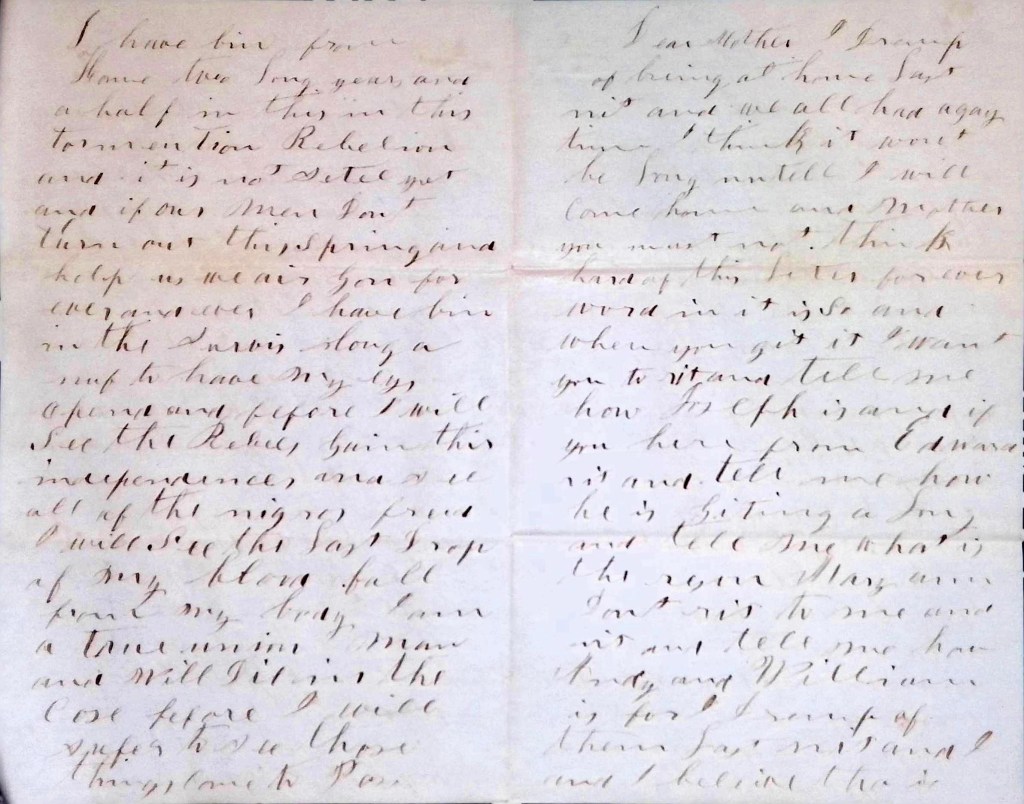 I have bin from
Home two long years and
a half in this in this
tormention Rebelion
and it is not setel yet
and if our men Dont
turn out this Spring and
help us we air gon for
ever and ever I have bin
in the Survis long a
nuf to have my eys
opend and before I will
See the Rebels gain this
independences and see
all of the nigros freud
I will See the last Drop
of my blood fall
from my body I am
a true union man
and will Die in the
Cose before I will
sufer to see those
things Come to Pass
Dear Mother I Dremp
of being at home last
nit and we all had a gay
time I think it wont
be long untell I will
Come home and Mother
you must not think
hard of this leter for ever
word in it is So and
when you git it I want
you to rit and tell me
how Joseph is and if
you hern from Edward
rit and tell me how
he is Giting a long
and tell me what is
the resin Mary ann
Dont rit to me and
rit and tell me how
Andy and William
is for I Dremp of
them last nit and I
and I beleive tha is